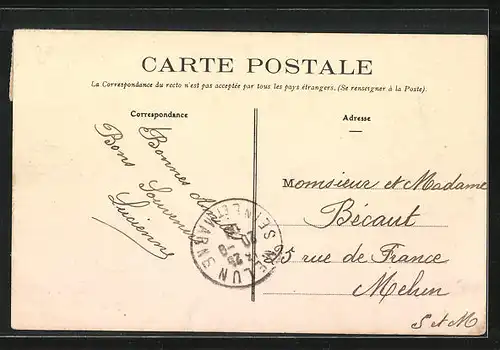 CARTE POSTALE
La Correspondance du recto n'est pas acceptée par tous les pays étrangers. (Se renseigner à la Poste).
Correspondance
Adresse
Bonnes
Bons Souvenirs
Lucienne
MELUN
SEINE ET MARNE
Monsieur et Madame
Bécaut
95 rue de France
Melun
S et M